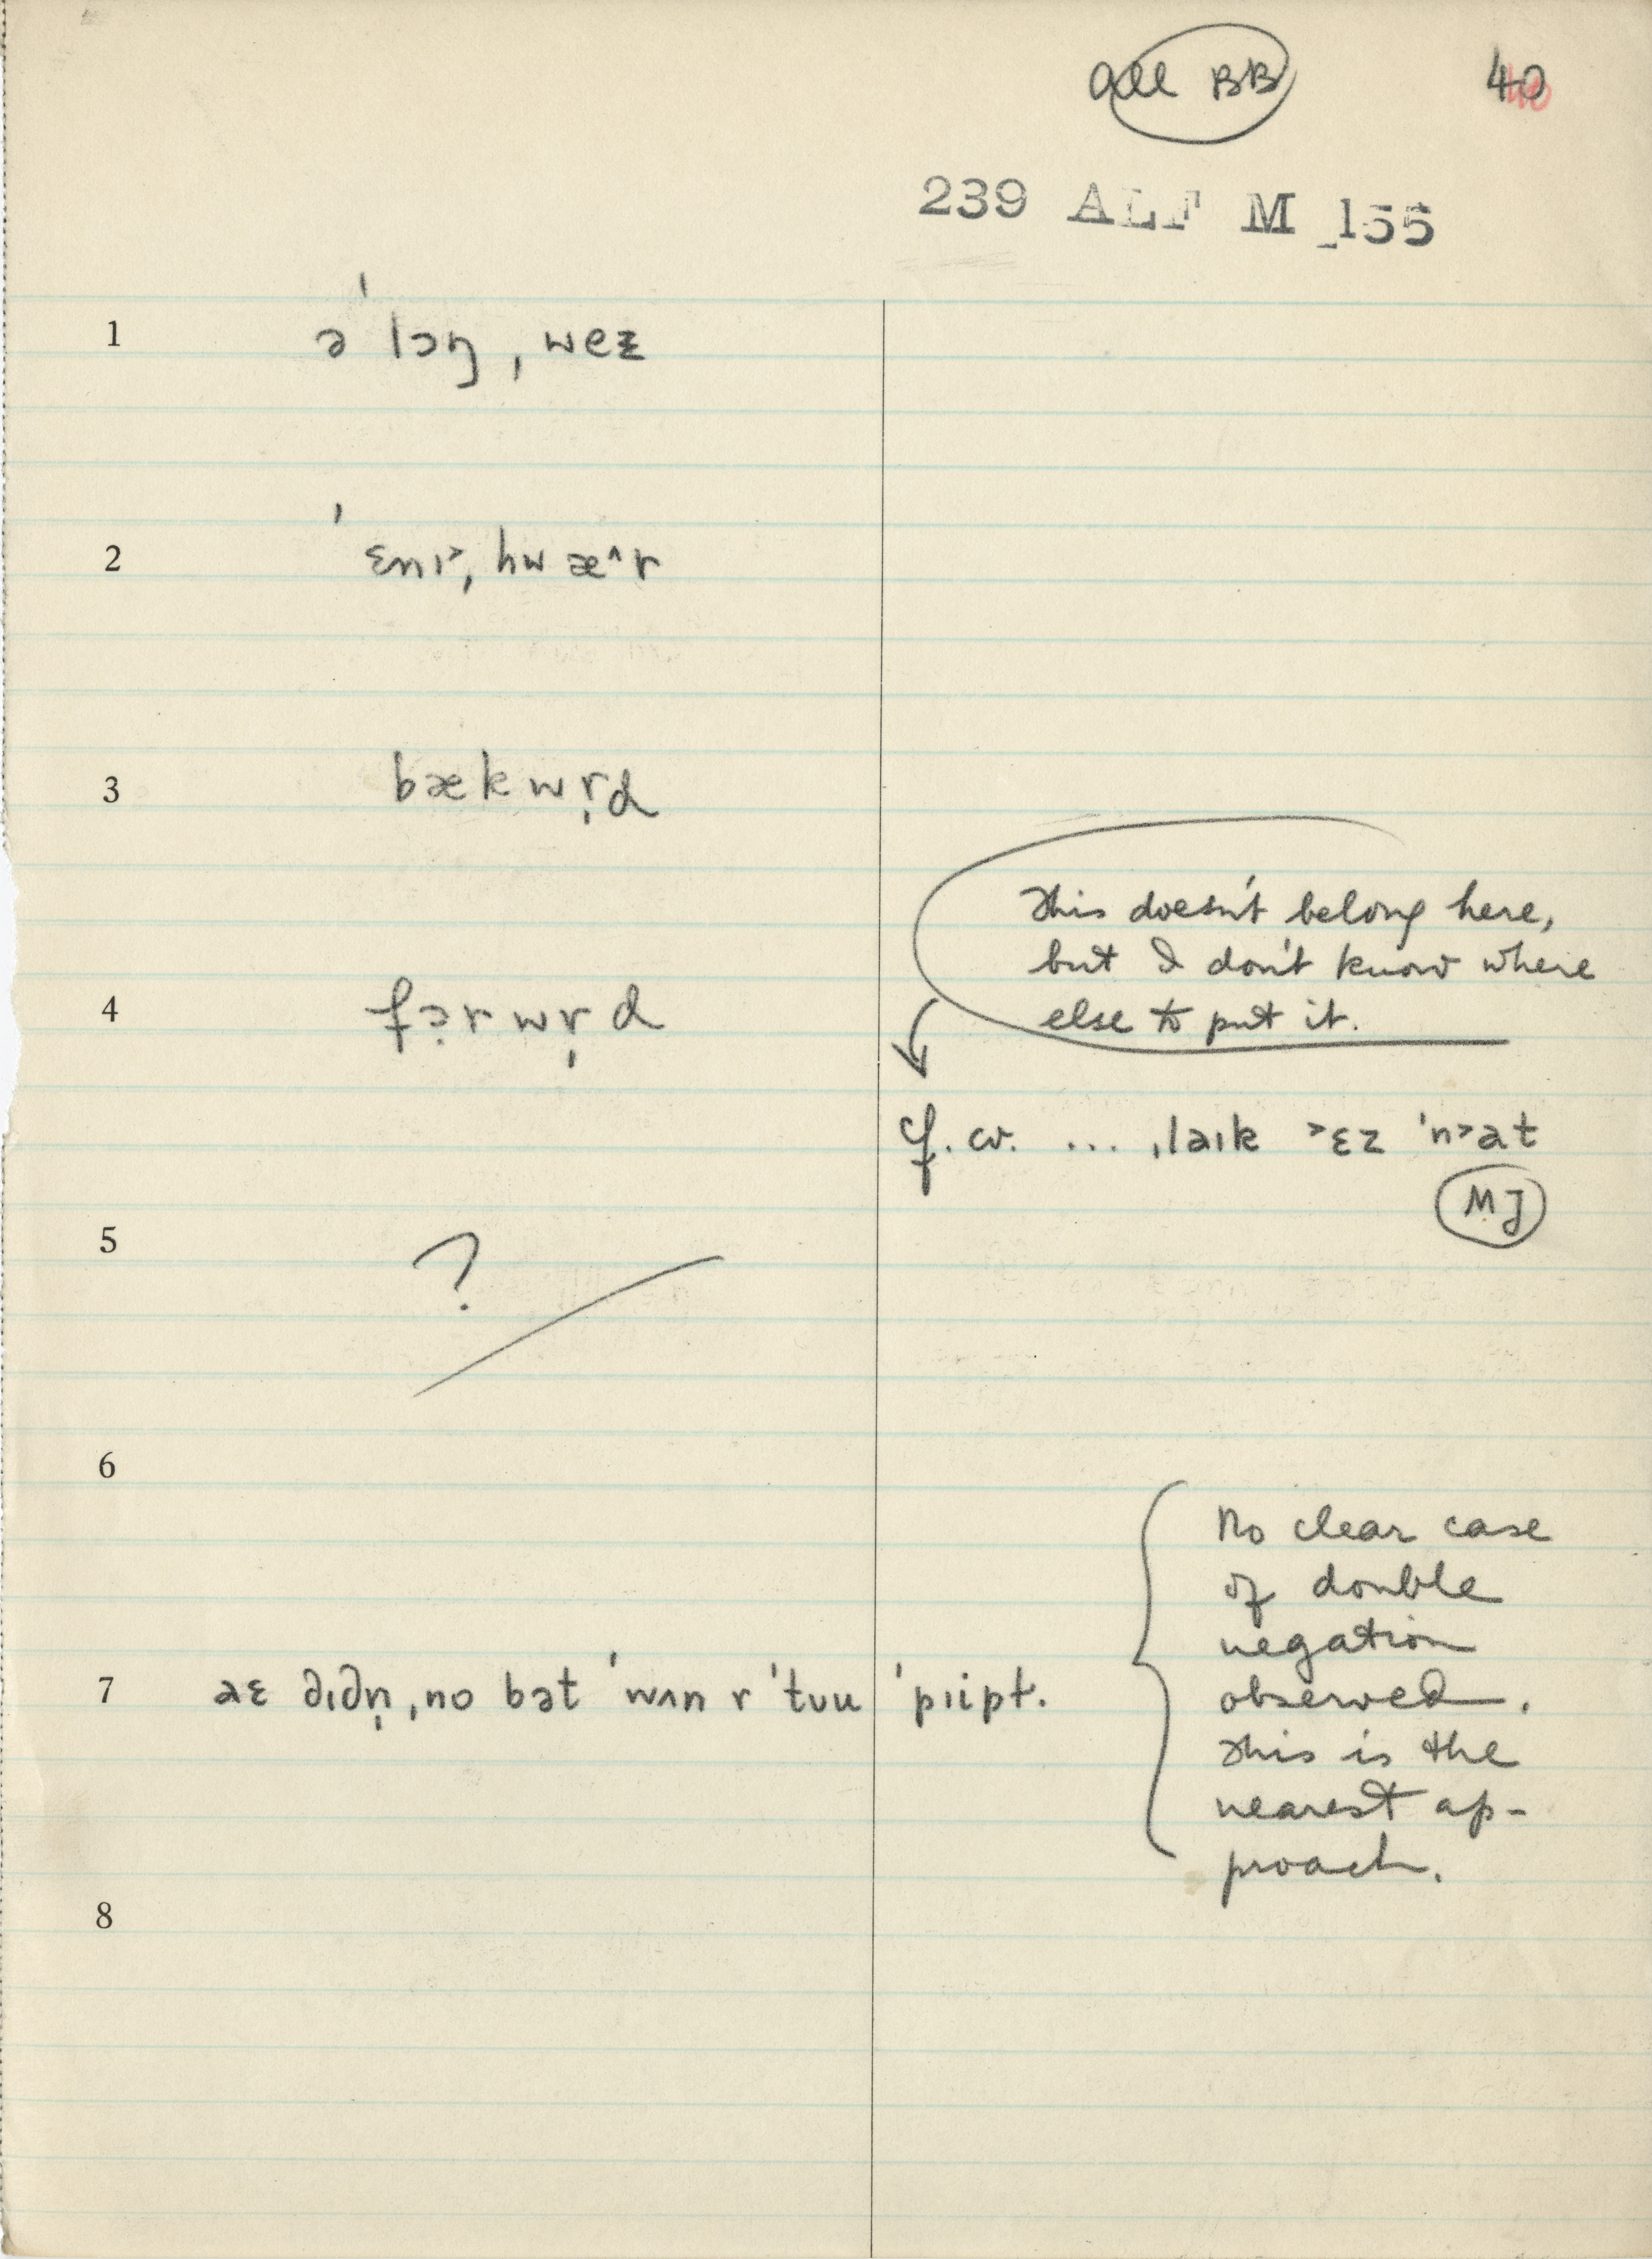 all BB 40
239 ALF M 155
1 ə ˈlɔŋ ˌwez
2 ˈɛnɪ˃ˌhwæ^r
3 bækwr̩d
This doesn't belong here,
but I don't know where
4 fɔ̣rwr̩d
else to put it.
cf. cv. ... ˌlaɪk ˃ɛz ˈn˃at
MJ
5 ?
6
No clear case
of double
negation
observed.
7 aɛ dɪdn̩ ˌno bət ˈwʌn r ˈtuu ˈpɪipt.
This is the
nearest ap-
proach.
8